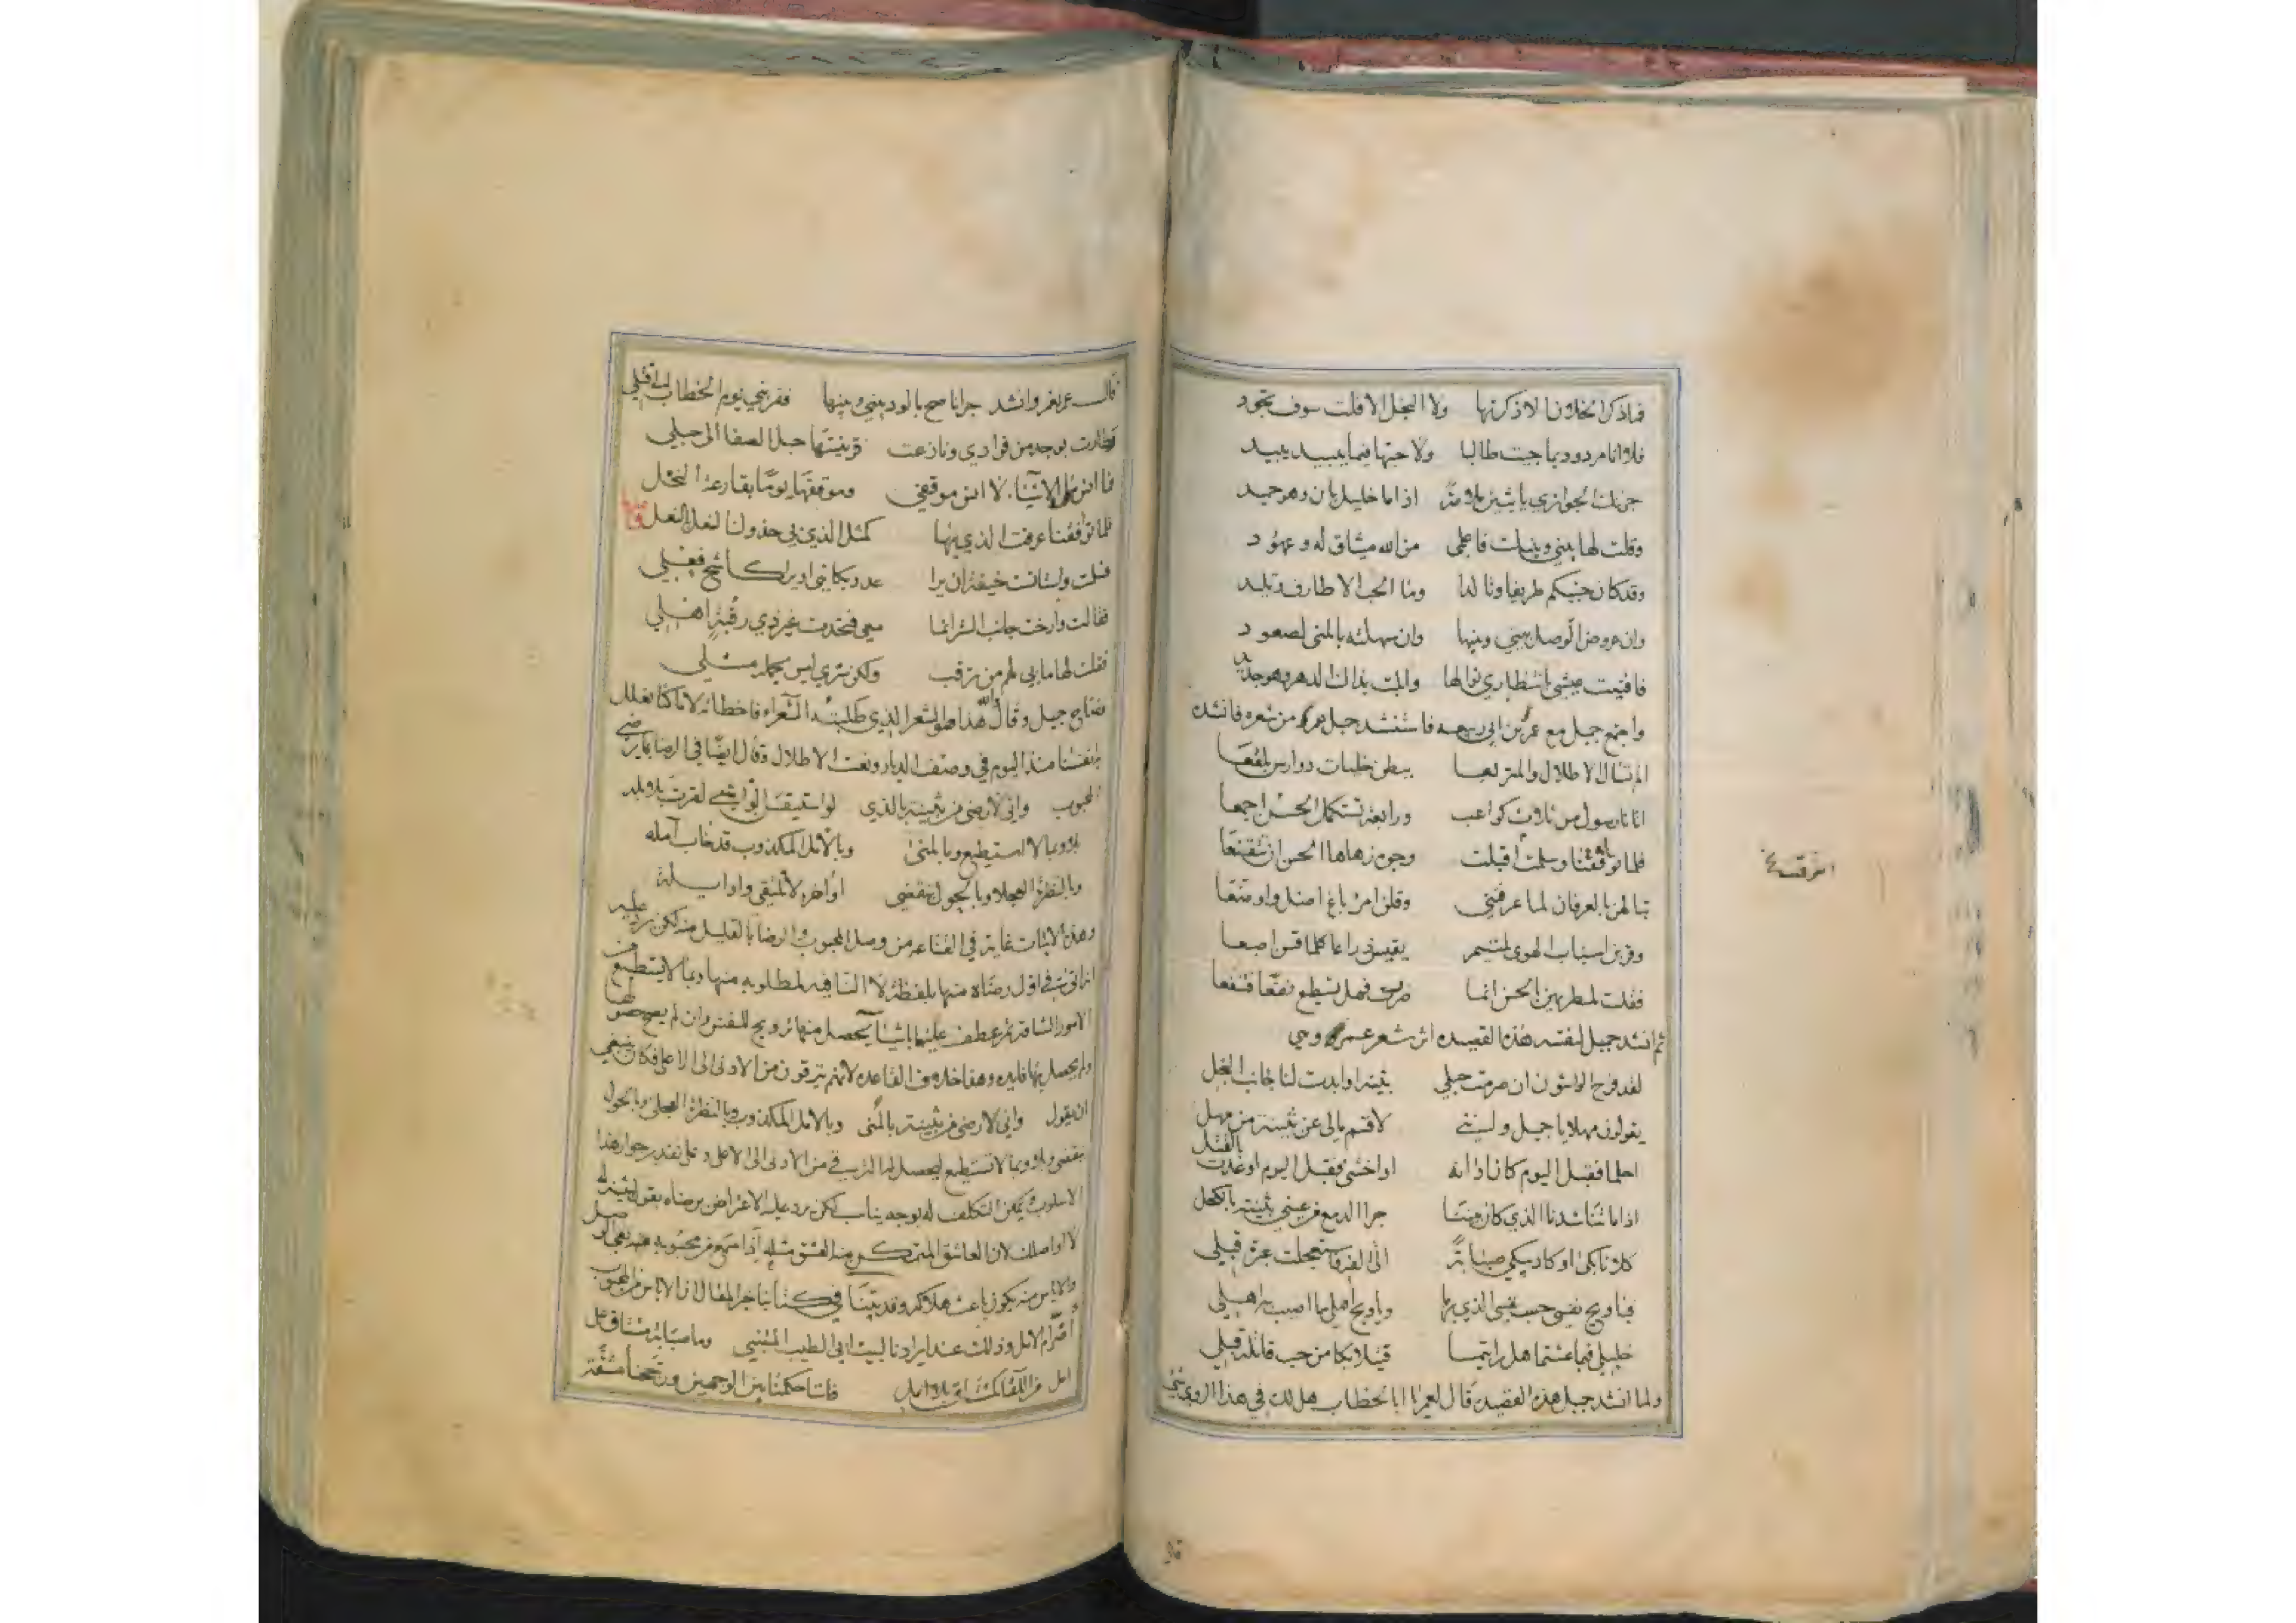 فما ذكر الخلان الا ذكرتها ولا البخل الا قلت سوف تجود
فلا انا مردود بما جيت طالبا ولا حبها فيما يبيد يبيد
جزتك الجوازي يا بثين ملامة اذا ما خليل بان وهو حميد
وقلت لها بيني وبينك فاعلمي من الله ميثاق له وعهود
وقد كان حبيكم طريفا وتالدا وما الحب الا طارف وتليد
وان عروض الوصل بيني وبينها وان سهلته بالمنى لصعود
فافنيت عيشي بانتظاري نوالها وابليت بذاك الدهر وهو جديد
واجتمع جميل مع عمر بن ابي ربيعه فاستنشد جميل عمر من شعره فانشده
الم تسال الاطلال والمتربعا ببطن حليات دوارس بلقعا
اتانا رسول من ثلاث كواعب ورابعة تستكمل الحسن اجمعا
فلما تواقفنا وسلمت اقبلت وجوه زهاها الحسن ان تتقنعا
تبالهن بالعرفان لما عرفنني وقلن امرؤ باغ اضل واوضعا
وقربن اسباب الهوى لمتيم يقيس ذراعا كلما قسن اصبعا
فقلت لمطريهن الحسن انما ضررت فهل تسطيع نفعا فتنفعا
ثم انشد جميل لنفسه هذه القصيده اثر شعر عمر وهي
لقد فرح الواشون ان صرمت حبلي بثينة او ابدت لنا جانب البخل
يقولون مهلا يا جميل وانني لاقسم مالي عن بثينة من مهل
احلما فقبل اليوم كان اوانه او اخشى فقبل اليوم اوعدت بالقتل
اذا ما تناشدنا الذي كان بيننا جرا الدمع من عيني بثينة بالكحل
كلانا بكى او كاد يبكي صبابة الى الفه واستعجلت عبرة قبلي
فيا ويح نفسي حسب نفسي الذي بها ويا ويح اهلي ما اصيب به اهلي
خليلي فيما عشتما هل رايتما قتيلا بكا من حب قاتله قبلي
ولما انشد جميل هذه القصيدة قال لعمر يا ابا الخطاب هل لك في هذا الروي شي
انفرقت
قال
قال عمر نعم وانشد جرا ناصح بالود بيني وبينها فقربني يوم الخطاب الى قتلي
فطارت بوجد من فوادي ونازعت قرينتها حبل الصفا الى حبلي
فما انس ملاشيا لا انس موقفي وموقفها يوما بقارعة النخل
فلما تواقفنا عرفت الذي بها كمثل الذي بي حذوك النعل بالنعل
فسلمت واستانست خيفة ان يرا عدو مكاني او يرى كاشح فعلي
فقالت وارخت جانب الستر انما معي فتحدث غير ذي رقبة اهلي
فقلت لها ما بي لهم من ترقب ولكن سري ليس يحمله مثلي
فصاح جميل وقال هذا والله هو الشعر الذي طلبته الشعراء فاخطاته لانا كنا نعلل
انفسنا منذ اليوم في وصف الديار ونعت الاطلال وقال ايضا في الرضا بما يرضي
المحبوب واني لارضى من بثينة بالذي لو استيقن الواشي لقرت بلابله
بلا وبما لا استطيع وبالمنى وبالامل المكذوب قد خاب آمله
وبالنظرة العجلا وبالحول تنقضي اواخره لا نلتقي واوايله
وهذه الابيات غاية في القناعه من وصل المحبوب والرضا بالقليل منه لكن يرد عليه
انه اتى في اول رضاه منها بلفظة لا النافيه لمطلوبه منها وبما لا يستطيع من
الامور الشاقة ثم عطف عليها باشيا يحصل منها ترويح للنفس وان لم يصح حصولها
ولم يحصل بها فايده وهذا خلاف القاعده لانهم يترقون من الادنى الى الاعلى فكان ينبغي
ان يقول واني لارضى من بثينة بالمنى وبالامل المكذوب وبالنظرة العجلى وبالحول
ينقضي ولا وبما لا تستطيع ليحصل له الترقي من الادنى الى الاعلى وعلى تقدير جواز هذا
الاسلوب يمكن التكلف له بوجه يناسب لكن يرد عليه الاعتراض برضاه بقول بثينة له
لا اواصلك لان العاشق المتمكن منه العشق مثله اذا سمع من محبوبه
والاياس منه يكون باعث هلاكه وقد بينا في كتابنا حرا المقال ان الاياس من المحبوب
اضرام الامل وذلك عند ايرادنا لبيت ابي الطيب المتنبي وما صبابة مشتاق على
امل من اللقا كمشتاق بلا امل فاننا حكمنا بين الوجهين ورجحنا مشقة